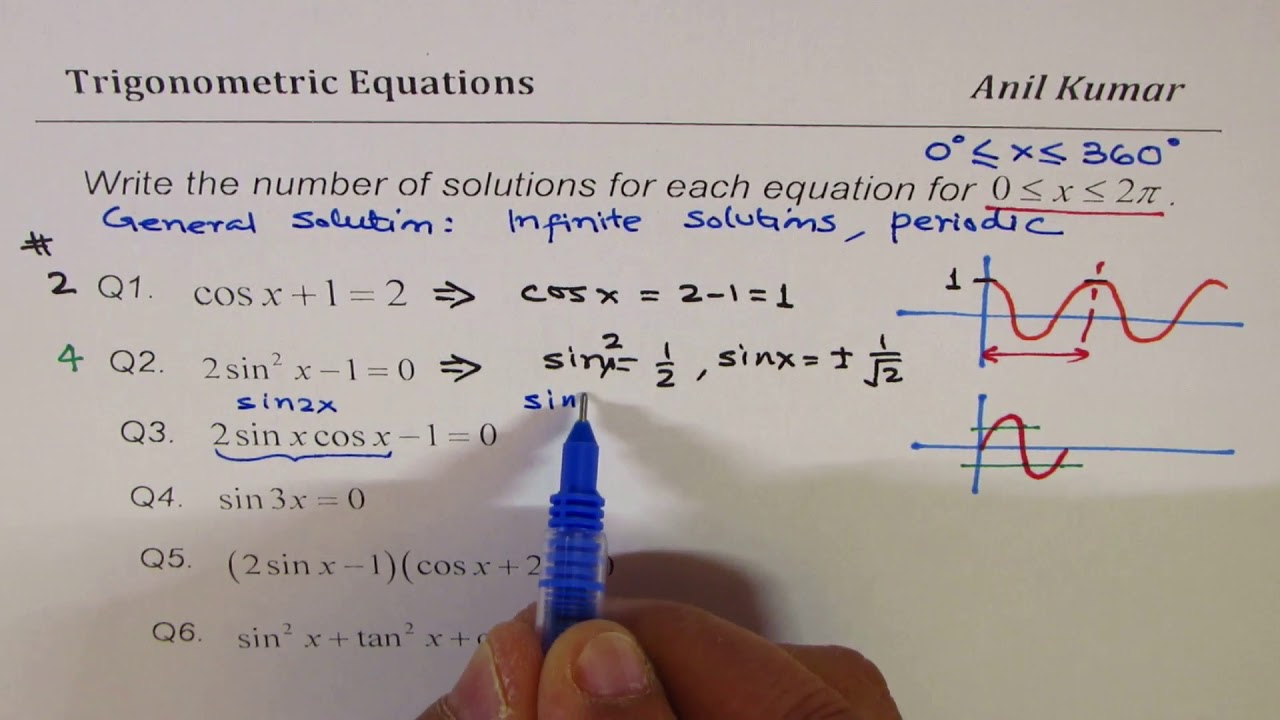 Trigonometric Equations Anil Kumar
0° ≤ x ≤ 360°
Write the number of solutions for each equation for 0 ≤ x ≤ 2π.
General Solution: Infinite Solutions, periodic
#
2 Q1. cos x + 1 = 2 ⇒ cos x = 2 - 1 = 1
1
4 Q2. 2 sin² x − 1 = 0 ⇒ sin²x = 1/2, sin x = ± 1/√2
sin2x sin
Q3. 2 sin x cos x − 1 = 0
Q4. sin 3x = 0
Q5. (2 sin x − 1)(cos x + 2 )
Q6. sin² x + tan² x +